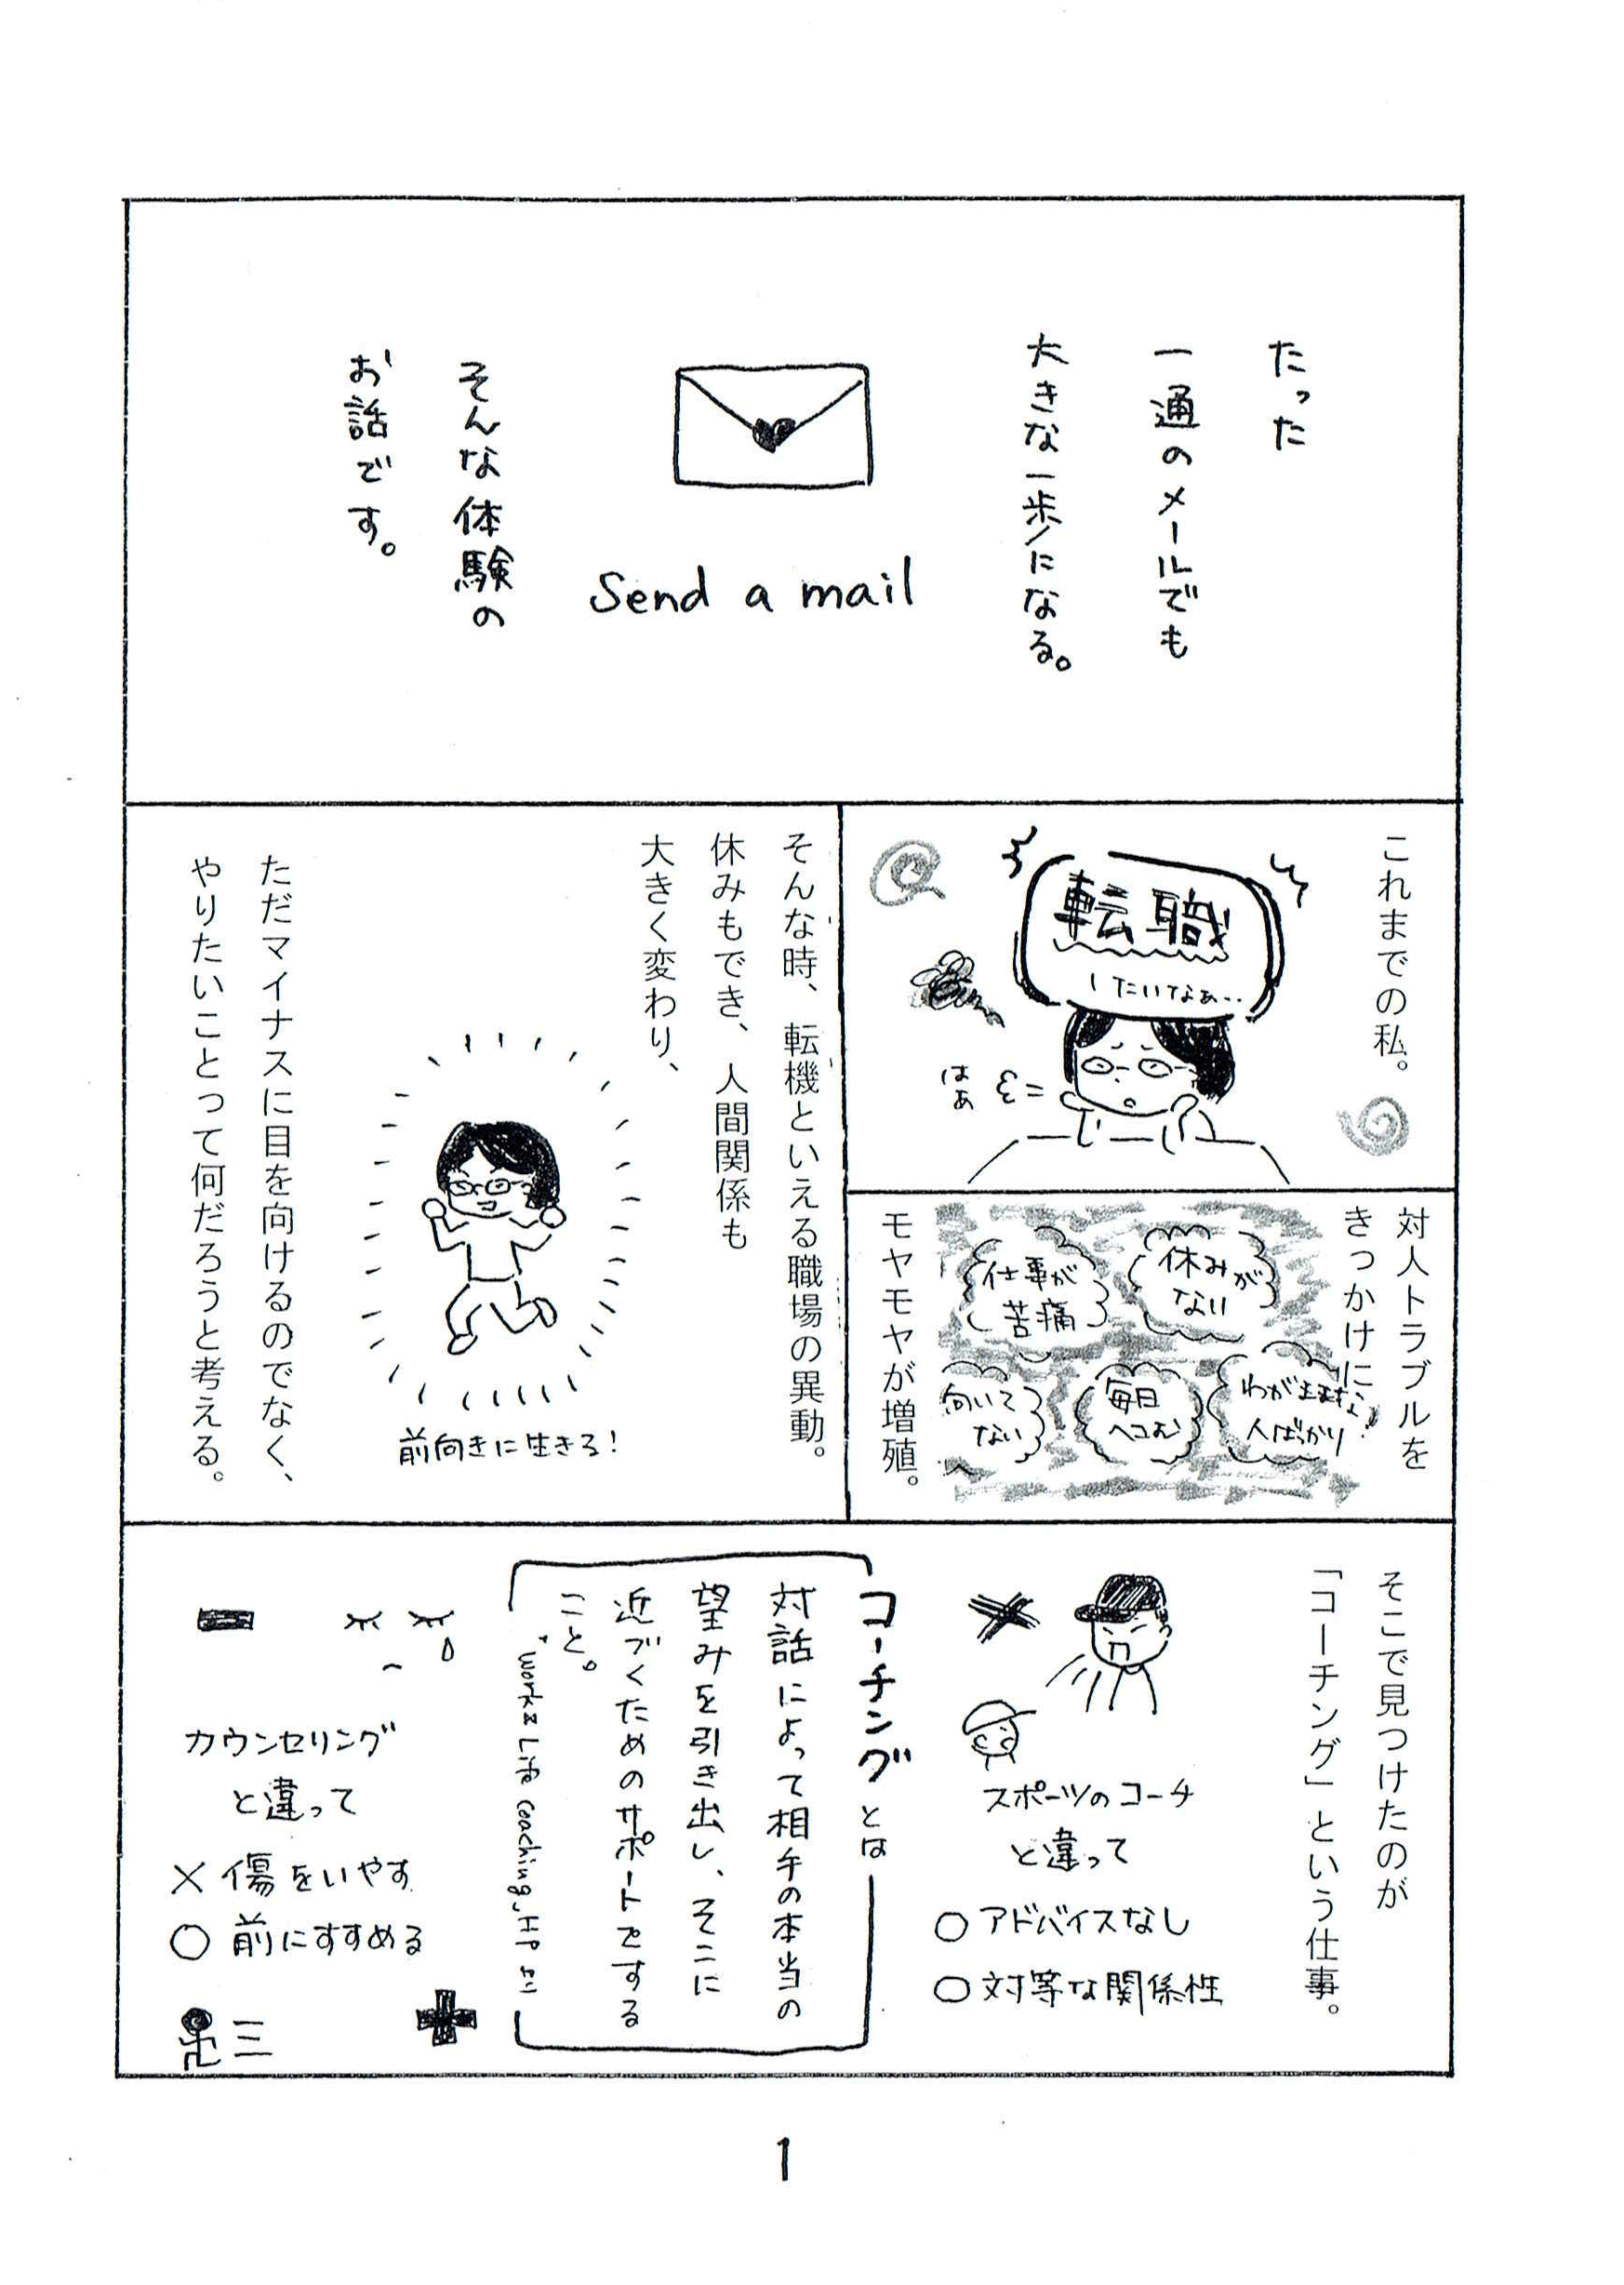 たった
一通のメールでも
大きな一歩になる。
Send a mail
そんな体験の
お話です。
これまでの私。
転職
したいなぁ…
はぁ
対人トラブルを
きっかけに
休みが
ない
仕事が
苦痛
わがままな
人ばっかり!
毎日
ヘコむ
向いて
ない
モヤモヤが増殖。
そんな時、転機といえる職場の異動。
休みもでき、人間関係も
大きく変わり、
前向きに生きろ!
ただマイナスに目を向けるのでなく、
やりたいことって何だろうと考える。
そこで見つけたのが
「コーチング」という仕事。
スポーツのコーチ
と違って
○アドバイスなし
○対等な関係性
コーチングとは
対話によって相手の本当の
望みを引き出し、そこに
近づくためのサポートをする
こと。
Life Coaching HPより
カウンセリング
と違って
×傷をいやす
○前にすすめる
1